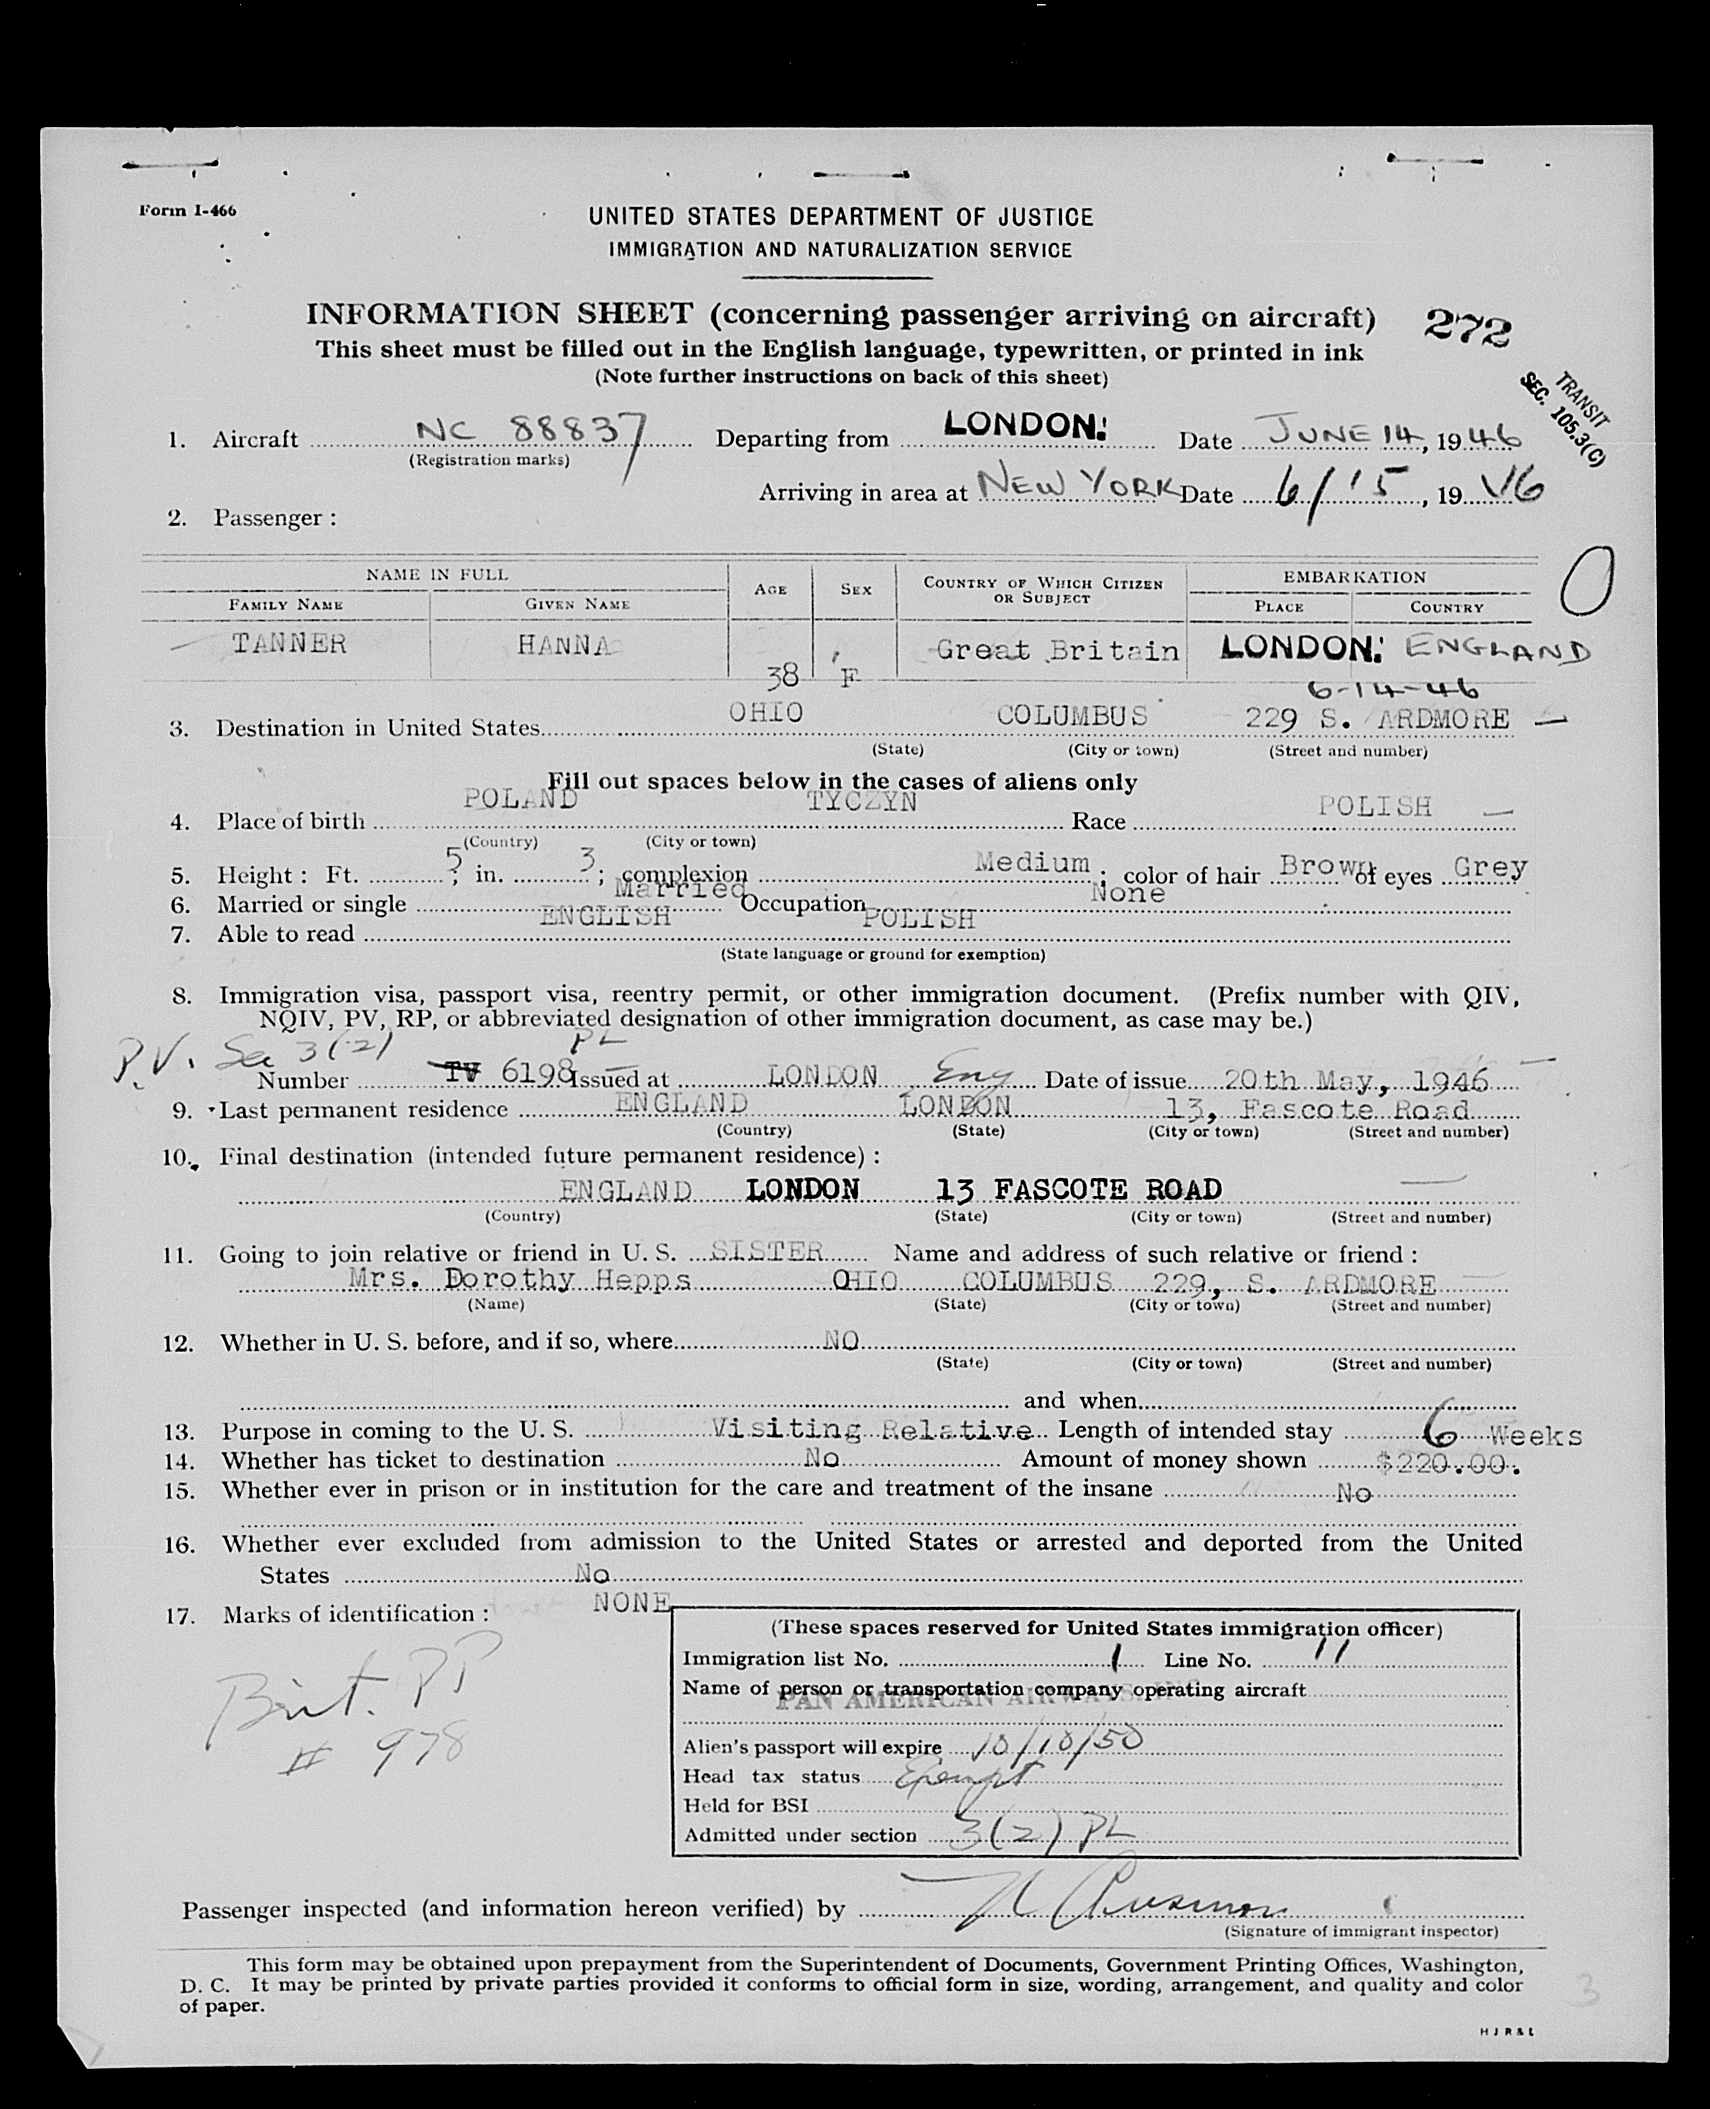 Form I-466
UNITED STATES DEPARTMENT OF JUSTICE
IMMIGRATION AND NATURALIZATION SERVICE
INFORMATION SHEET (concerning passenger arriving on aircraft) 272
This sheet must be filled out in the English language, typewritten, or printed in ink
(Note further instructions on back of this sheet)
TRANSIT
SEC. 105.3(C)
1. Aircraft NC 88837 Departing from LONDON. Date JUNE 14, 1946
(Registration marks)
Arriving in area at NEW YORK Date 6/15, 19 46
2. Passenger :
NAME IN FULL AGE SEX COUNTRY OF WHICH CITIZEN OR SUBJECT EMBARKATION
FAMILY NAME GIVEN NAME PLACE COUNTRY
TANNER HANNA 38 F Great Britain LONDON. ENGLAND
6-14-46
3. Destination in United States OHIO COLUMBUS 229 S. ARDMORE
(State) (City or town) (Street and number)
Fill out spaces below in the cases of aliens only
4. Place of birth POLAND TYCZYN Race POLISH
(Country) (City or town)
5. Height : Ft. 5 ; in. 3 ; complexion Medium ; color of hair Brown of eyes Grey
6. Married or single Married Occupation None
7. Able to read ENGLISH POLISH
(State language or ground for exemption)
8. Immigration visa, passport visa, reentry permit, or other immigration document. (Prefix number with QIV,
NQIV, PV, RP, or abbreviated designation of other immigration document, as case may be.)
P.V. Sec 3(2) PL
Number TV 6198 Issued at LONDON Eng Date of issue 20th May, 1946
9. Last permanent residence ENGLAND LONDON 13, Fascote Road
(Country) (State) (City or town) (Street and number)
10. Final destination (intended future permanent residence) :
ENGLAND LONDON 13 FASCOTE ROAD
(Country) (State) (City or town) (Street and number)
11. Going to join relative or friend in U. S. SISTER Name and address of such relative or friend :
Mrs. Dorothy Hepps OHIO COLUMBUS 229, S. ARDMORE
(Name) (State) (City or town) (Street and number)
12. Whether in U. S. before, and if so, where NO
(State) (City or town) (Street and number)
and when
13. Purpose in coming to the U. S. Visiting Relative Length of intended stay 6 Weeks
14. Whether has ticket to destination No Amount of money shown $220.00.
15. Whether ever in prison or in institution for the care and treatment of the insane No
16. Whether ever excluded from admission to the United States or arrested and deported from the United
States No
17. Marks of identification : NONE
Brit. PP
# 978
(These spaces reserved for United States immigration officer)
Immigration list No. 1 Line No. 11
Name of person or transportation company operating aircraft
PAN AMERICAN AIRWAYS
Alien's passport will expire 10/10/50
Head tax status Exempt
Held for BSI
Admitted under section 3(2) PL
Passenger inspected (and information hereon verified) by
(Signature of immigrant inspector)
This form may be obtained upon prepayment from the Superintendent of Documents, Government Printing Offices, Washington,
D. C. It may be printed by private parties provided it conforms to official form in size, wording, arrangement, and quality and color
of paper.
3
H J R & L